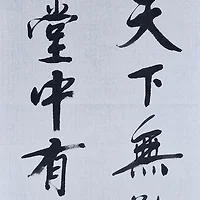 天下無
堂中有